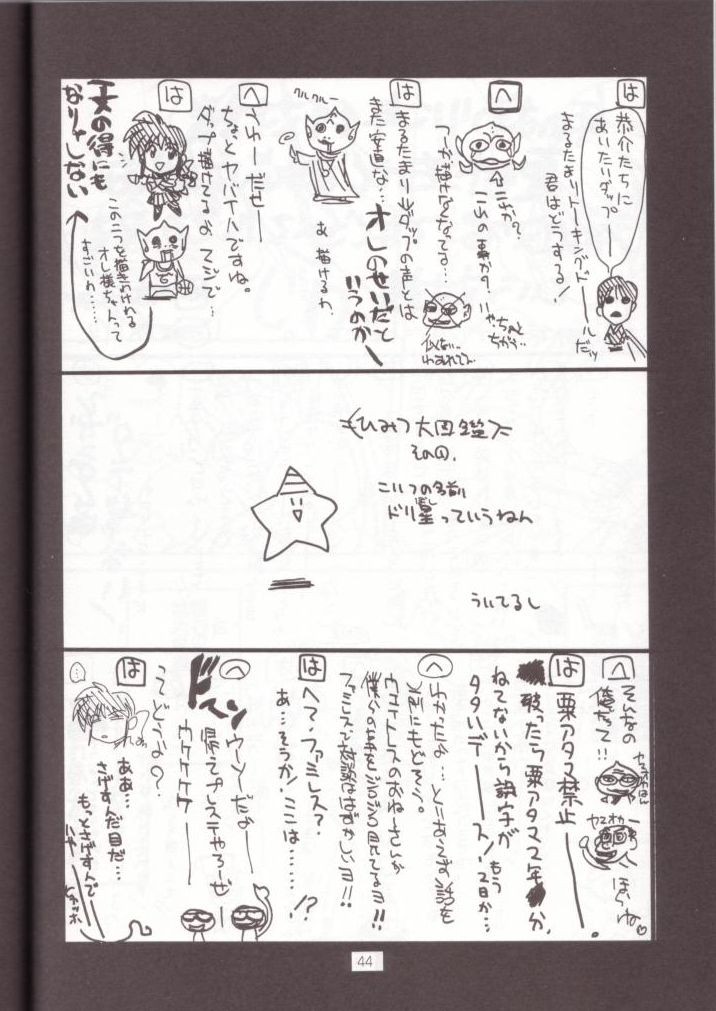 は
恭介たちに
あいたいダップ
まるたまりトーキングドールだッ
君はどうする!
へ
これか?
これの事か?
いや…
ちがう…
つーか描けなくなってる…
似ない…
は
まるたまりダップの声とは
また安直な…
オレのせいだと
いうのか
クルクルー
あ 描けるわ
へ
うわーだせー
ちょっとヤバイハですね。
ダップ描けてるよ マジで…
は
この二つを描きわけれる
オレ様ちゃんって
すごいわ……
一文の得にも
なりゃしない
ひみつ大図鑑
その1、
こいつの名前
ドリ星っていうねん
ぼし
ういてるし
へ
そんなの
俺だって!!
ヤマオカ
ほらね♡
は
粟アタマ禁止ー
破ったら粟アタマ2年か、
ねてないから誤字が
もう
タタいデースノ 2日か…
へ
わかったよ…とりあえず話を
元にもどそう。
ウェイトレスのおねーさんが
僕らの事をジロジロ見てるヨ!!
ファミレスで
はずかしいヨ!!
は
へて、ファミレス?
あ…そうか!ここは………!?
へ
ドドーン
ウーソだよー
帰ってプレステやろーぜ
ウケケケケー
は
ってどうよな?
ああ…
さげすんだ目だ…
もっとさげすんで
ハヤー
ヒャッホ
44